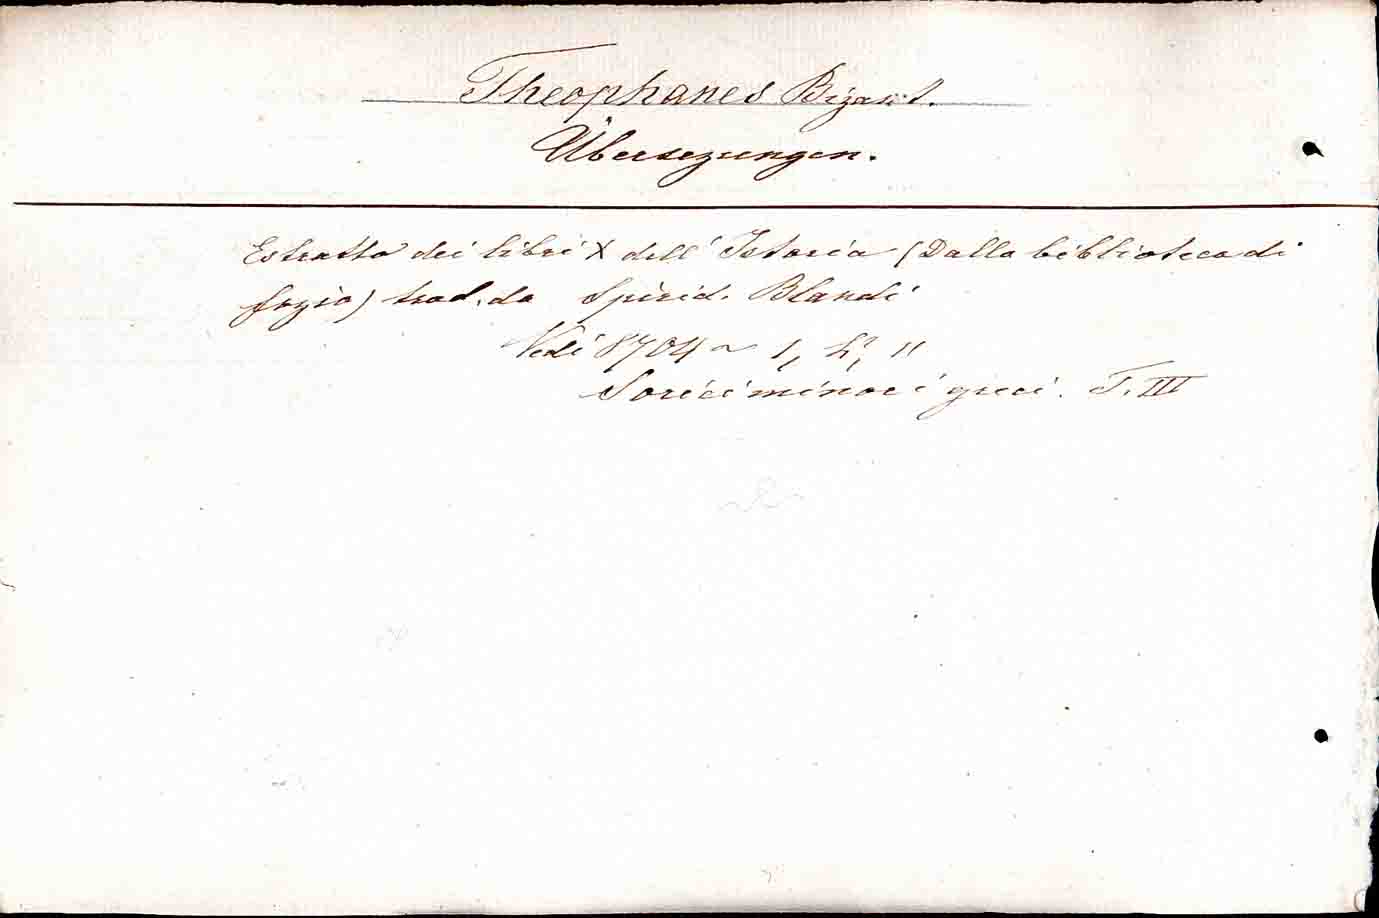 Theophanes Bizant.
Übersezungen.
Estratto dei libri X dell' Istoria (Dalla biblioteca di
fozio) trad. da Spirid. Blandi
Vedi 8704 1, 11
minori greci. T. III